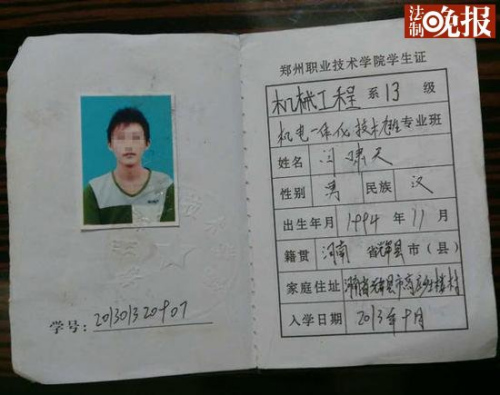 法制晚报
学号: 2013013209 07
郑州职业技术学院学生证
机械工程 系 13 级
机电一体化技术 专业 班
姓名 闫啸天
性别 男 民族 汉
出生年月 1994 年 11 月
籍贯 河南 省 辉县 市（县）
家庭住址 河南省辉县市高庄乡 村
入学日期 2013年9月